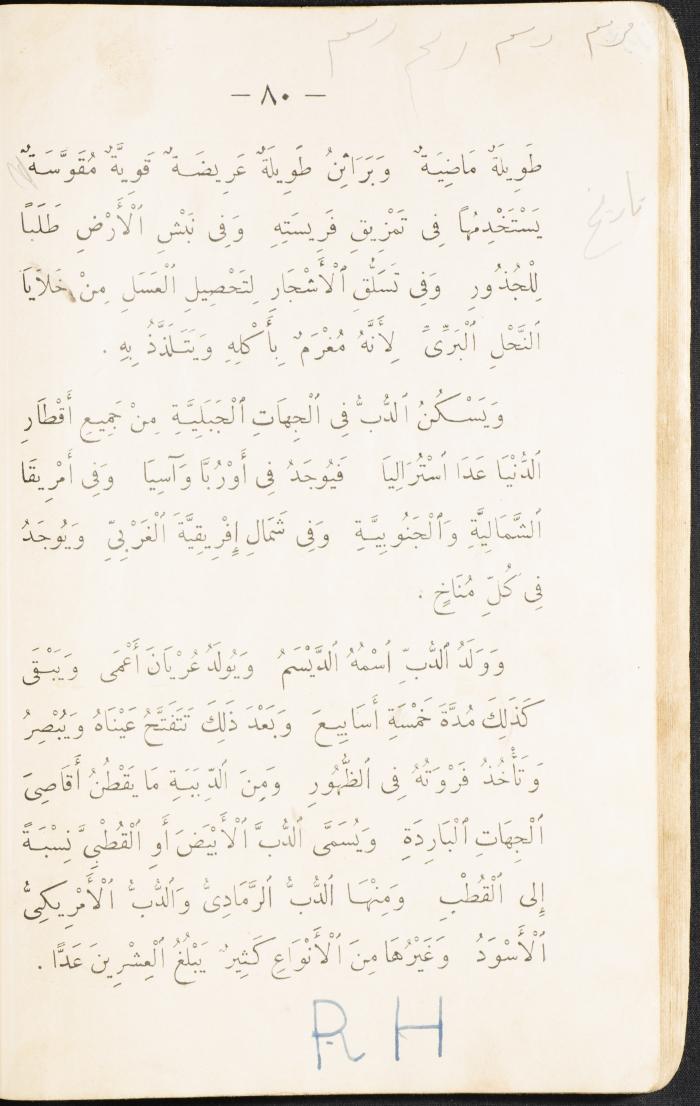 رسم رسم
— ٨٠ —
طَوِيلَةٌ مَاضِيَةٌ وَبَرَاثِنُ طَوِيلَةٌ عَرِيضَةٌ قَوِيَّةٌ مُقَوَّسَةٌ
يَسْتَخْدِمُهَا فِى تَمْزِيقِ فَرِيسَتِهِ وَفِى نَبْشِ ٱلْأَرْضِ طَلَبًا
لِلْجُذُورِ وَفِى تَسَلُّقِ ٱلْأَشْجَارِ لِتَحْصِيلِ ٱلْعَسَلِ مِنْ خَلَايَا
ٱلنَّحْلِ ٱلْبَرِّىِّ لِأَنَّهُ مُغْرَمٌ بِأَكْلِهِ وَيَتَلَذَّذُ بِهِ .
وَيَسْكُنُ ٱلدُّبُّ فِى ٱلْجِهَاتِ ٱلْجَبَلِيَّةِ مِنْ جَمِيعِ أَقْطَارِ
ٱلدُّنْيَا عَدَا ٱسْتُرَالِيَا فَيُوجَدُ فِى أُورُبَّا وَآسِيَا وَفِى أَمْرِيقَا
ٱلشَّمَالِيَّةِ وَٱلْجَنُوبِيَّةِ وَفِى شَمَالِ إِفْرِيقِيَّةَ ٱلْغَرْبِىِّ وَيُوجَدُ
فِى كُلِّ مُنَاخٍ .
وَوَلَدُ ٱلدُّبِّ ٱسْمُهُ ٱلدَّيْسَمُ وَيُولَدُ عُرْيَانَ أَعْمَى وَيَبْقَى
كَذَلِكَ مُدَّةَ خَمْسَةِ أَسَابِيعَ وَبَعْدَ ذَلِكَ تَتَفَتَّحُ عَيْنَاهُ وَيُبْصِرُ
وَتَأْخُذُ فَرْوَتُهُ فِى ٱلظُّهُورِ وَمِنَ ٱلدِّبَبَةِ مَا يَقْطُنُ أَقَاصِىَ
ٱلْجِهَاتِ ٱلْبَارِدَةِ وَيُسَمَّى ٱلدُّبَّ ٱلْأَبْيَضَ أَوِ ٱلْقُطْبِىَّ نِسْبَةً
إِلى ٱلْقُطْبِ وَمِنْهَا ٱلدُّبُّ ٱلرَّمَادِىُّ وَٱلدُّبُّ ٱلْأَمْرِيكِىُّ
ٱلْأَسْوَدُ وَغَيْرُهَا مِنَ ٱلْأَنْوَاعِ كَثِيرٌ يَبْلُغُ ٱلْعِشْرِينَ عَدًّا .
R H